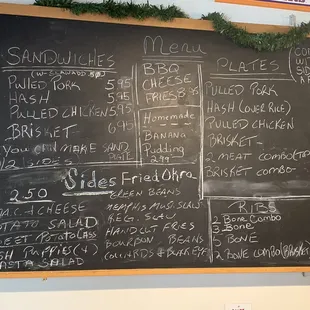 Menu
SANDWICHES
PULLED PORK 5.95
HASH 5.95
PULLED CHICKEN 5.95
BRISKET 6.95
YOU CAN MAKE SAND.
2 SIDES
BBQ
CHEESE
FRIES
Homemade
BANANA
Pudding
2.99
PLATES
PULLED PORK
HASH (OVER RICE)
PULLED CHICKEN
BRISKET
2 MEAT COMBO
BRISKET COMBO
Sides Fried Okra
2.50
MAC + CHEESE
POTATO SALAD
SWEET POTATO
HUSH PUPPIES (4)
PASTA SALAD
GREEN BEANS
MEMPHIS MUST. SLAW
REG. SLAW
HANDCUT FRIES
BOURBON BEANS
RIBS
2 BONE COMBO
3 BONE
5 BONE
2 BONE COMBO (BRISKET